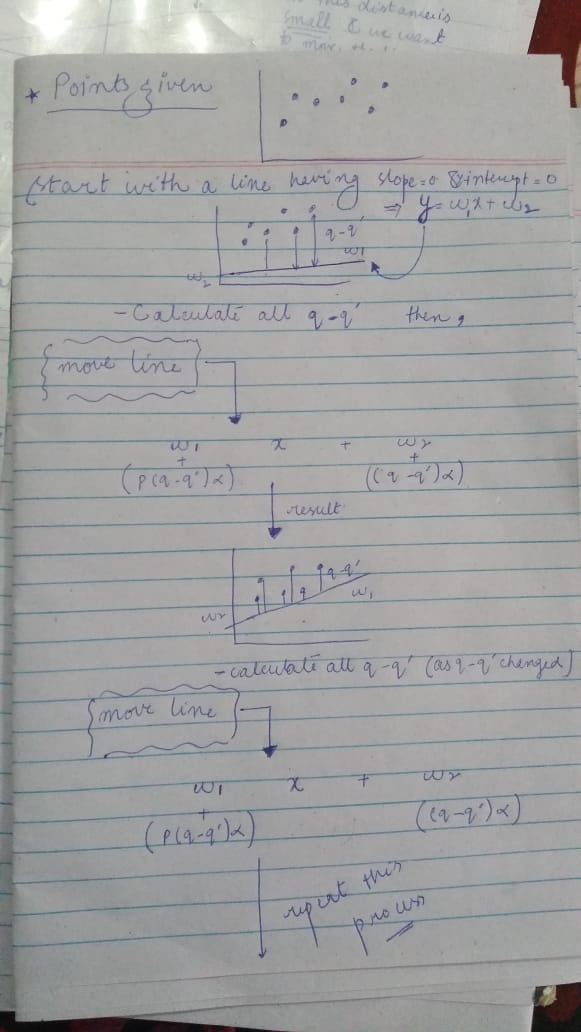 this distance is
small & we want
to mov
* Points given
Start with a line having slope=0 & yintercept=0
⇒ y=w₁x+w₂
q-q'
w₁
w₂
- Calculate all q-q' then,
move line
w₁ x + w₂
+ +
(p(q-q')α) ((q-q')α)
result
q-q'
w₁
w₂
- calculate all q-q' (as q-q' changed)
move line
w₁ x + w₂
+
(p(q-q')α) ((q-q')α)
repeat this
process